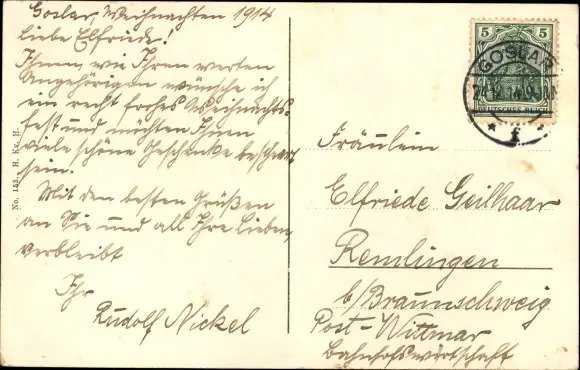 Goslar, Weihnachten 1914
Liebe Elfriede!
Ihnen, wie Ihren werten
Angehörigen wünsche ich
ein recht frohes Weihnachts-
fest und möchten Ihnen
viele schöne Geschenke beschert
sein.
Mit den besten Grüßen
an Sie und all Ihre Lieben,
verbleibt
Ihr
Rudolf Nickel
No. 153. H. Kr. H.
5 5
DEUTSCHES REICH
GOSLAR
* f *
Fräulein
Elfriede Geilhaar
Remlingen
b/Braunschweig
Post-Wittmar
Bahnhofswirtschaft